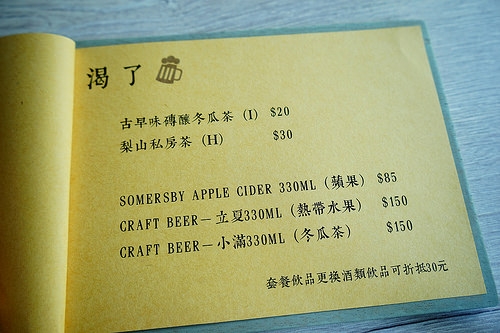 渴了
古早味磚釀冬瓜茶 (I) $20
梨山私房茶 (H) $30
SOMERSBY APPLE CIDER 330ML (蘋果) $85
CRAFT BEER－立夏330ML (熱帶水果) $150
CRAFT BEER－小滿330ML (冬瓜茶) $150
套餐飲品更換酒類飲品可折抵30元